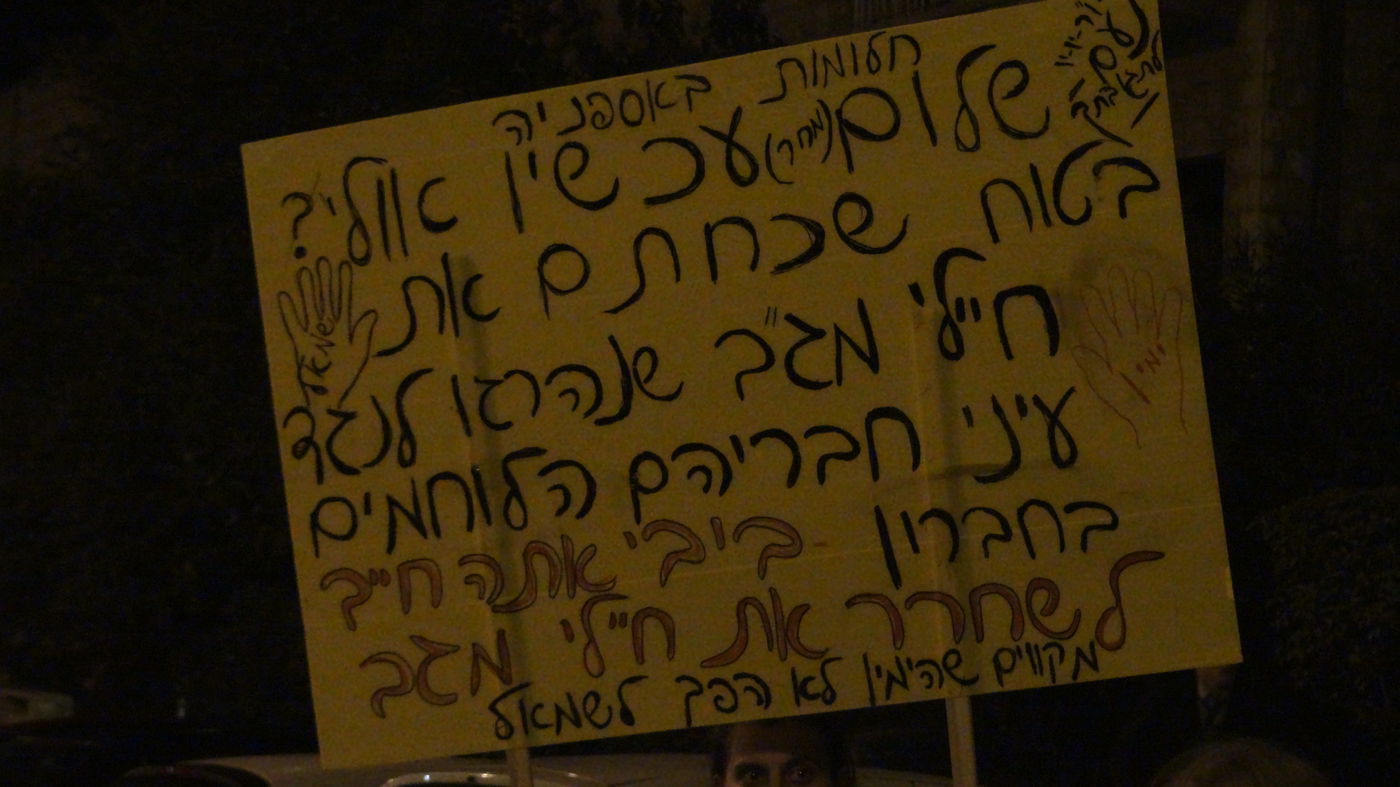 חלומות באספניה
שלום (מחר) עכשין אוולי?
בטוח שכחתם את
חיילי מג"ב שנהרגו לנגד
עיני חבריהם הלוחמים
בחברון ביבי אתה חייב
לשחרר את חיילי מגב
מקווים שהימין לא הפך לשמאל
ימין
שמאל